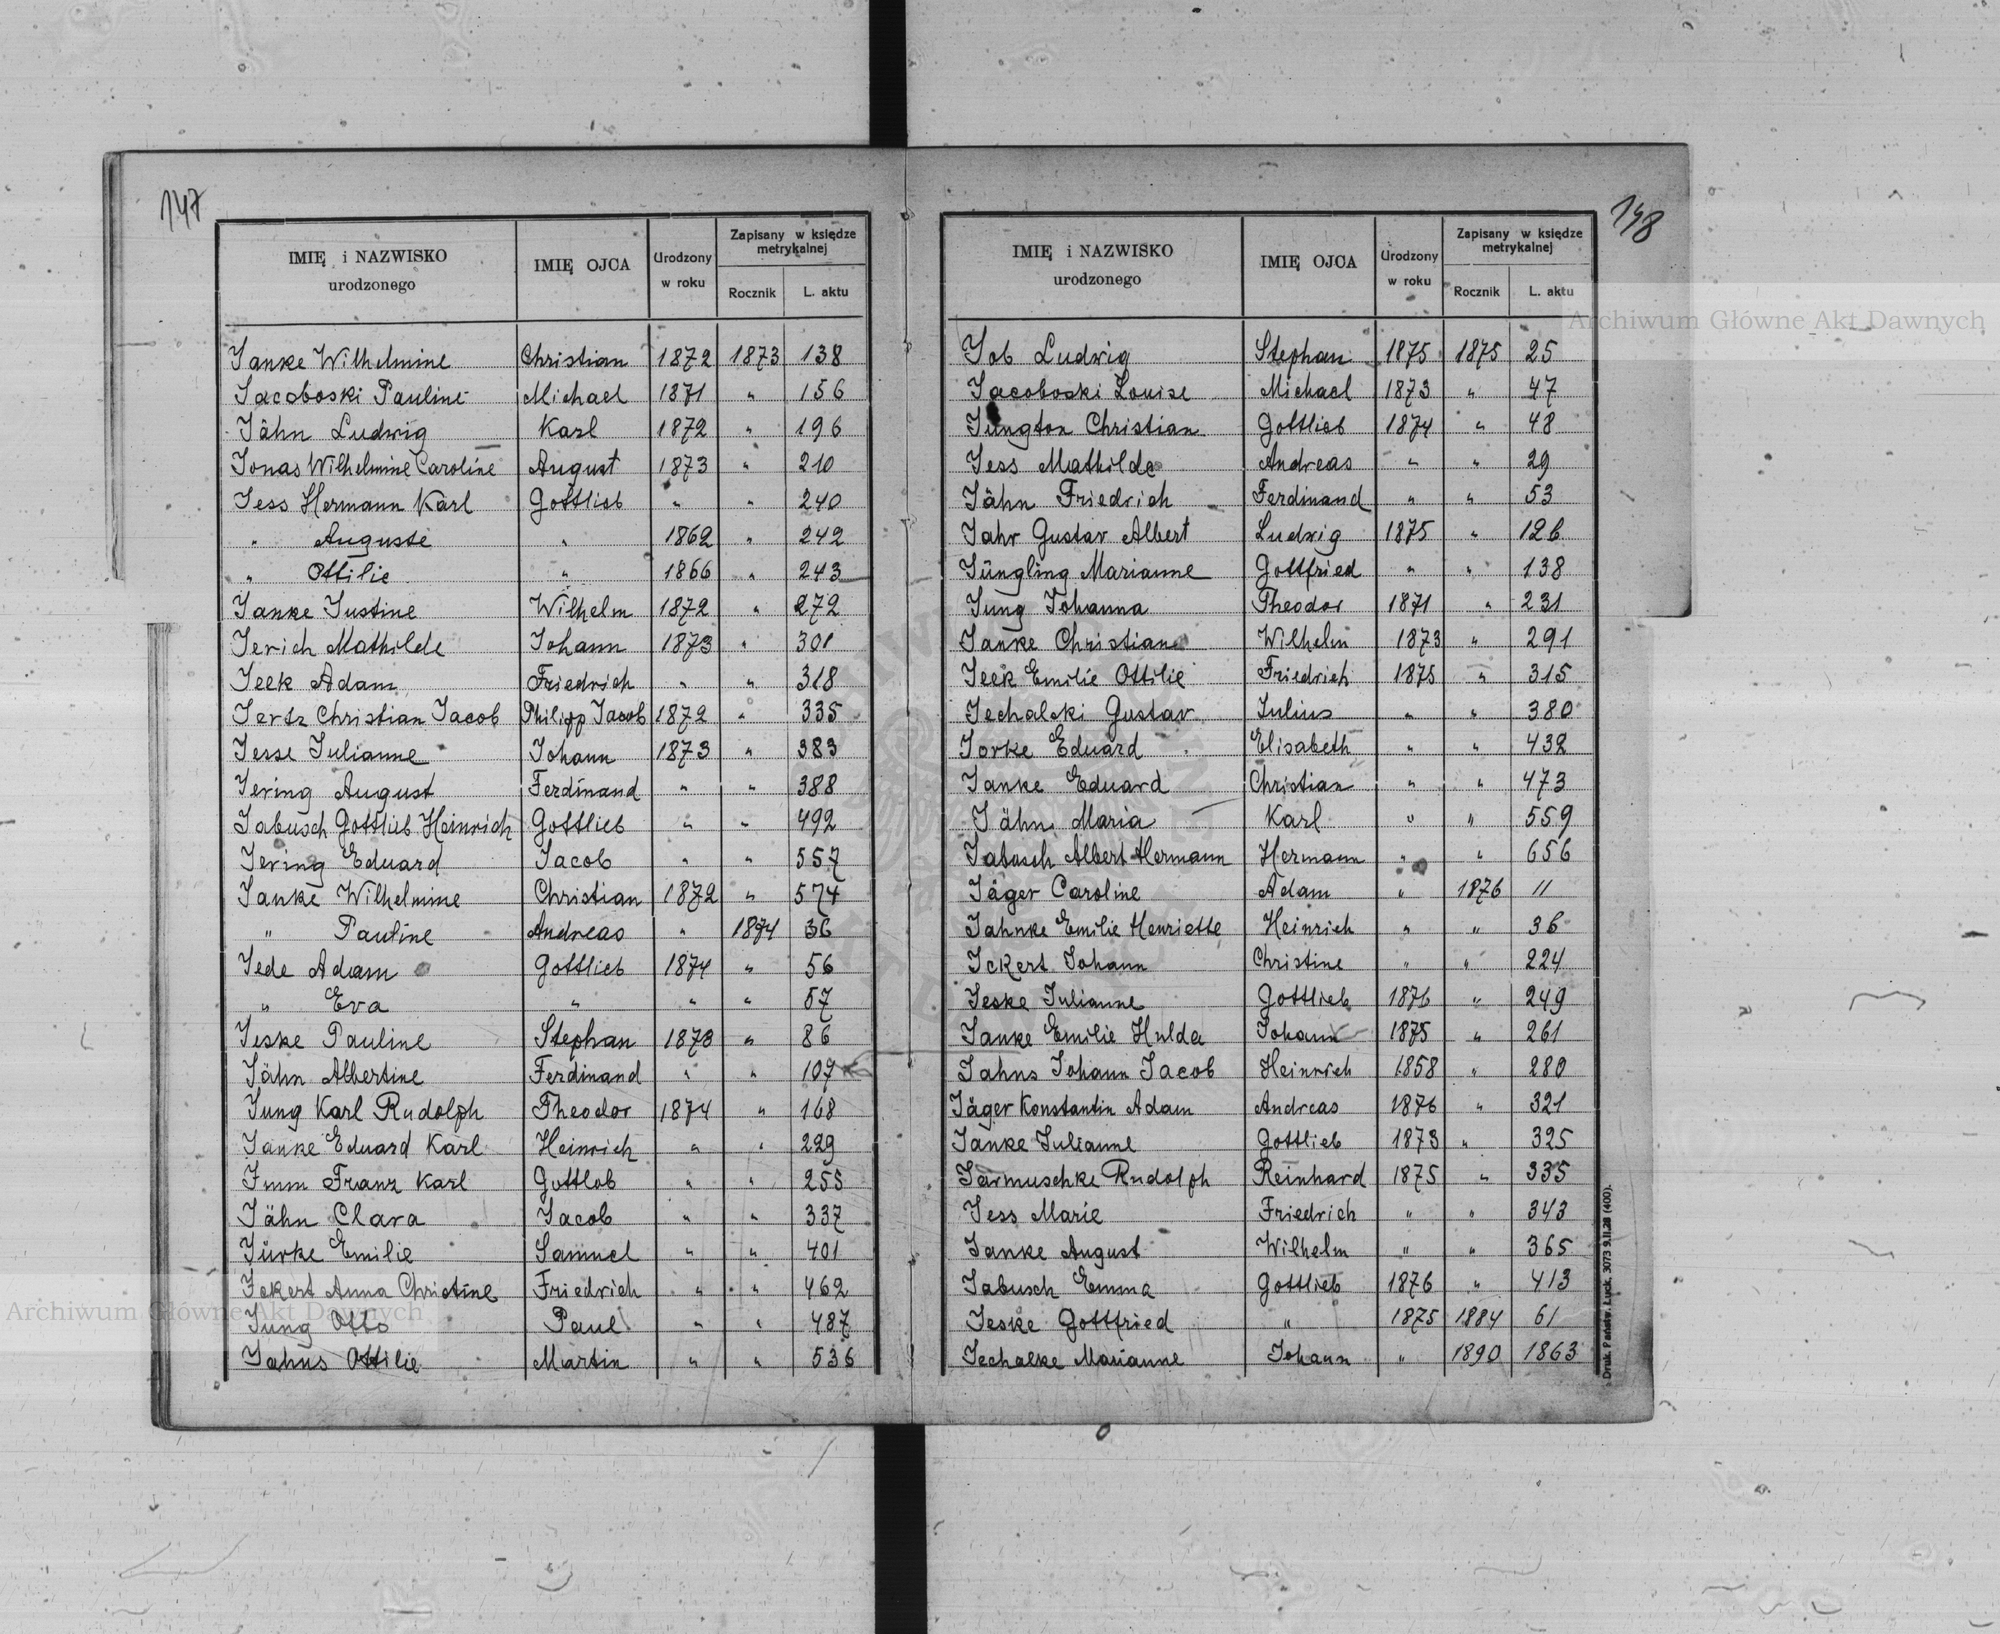 147
IMIĘ i NAZWISKO urodzonego | IMIĘ OJCA | Urodzony w roku | Zapisany w księdze metrykalnej
Rocznik | L. aktu
Janke Wilhelmine | Christian | 1872 | 1873 | 138
Jacoboski Pauline | Michael | 1871 | " | 156
Jähn Ludwig | Karl | 1872 | " | 196
Jonas Wilhelmine Caroline | August | 1873 | " | 210
Jess Hermann Karl | Gottlieb | " | " | 240
" Auguste | " | 1862 | " | 242
" Ottilie | " | 1866 | " | 243
Janke Justine | Wilhelm | 1872 | " | 272
Jerich Mathilde | Johann | 1873 | " | 301
Jeek Adam | Friedrich | " | " | 318
Jertz Christian Jacob | Philipp Jacob | 1872 | " | 335
Jesse Julianne | Johann | 1873 | " | 383
Jering August | Ferdinand | " | " | 388
Jabusch Gottlieb Heinrich | Gottlieb | " | " | 492
Jering Eduard | Jacob | " | " | 557
Janke Wilhelmine | Christian | 1872 | " | 574
" Pauline | Andreas | " | 1874 | 36
Jede Adam | Gottlieb | 1874 | " | 56
" Eva | " | " | " | 57
Jeske Pauline | Stephan | 1873 | " | 86
Jähn Albertine | Ferdinand | " | " | 107
Jung Karl Rudolph | Theodor | 1874 | " | 168
Janke Eduard Karl | Heinrich | " | " | 229
Imm Franz Karl | Gottlob | " | " | 255
Jähn Clara | Jacob | " | " | 337
Jürke Emilie | Samuel | " | " | 401
Ickert Anna Christine | Friedrich | " | " | 462
Jung Otto | Paul | " | " | 487
Jahns Ottilie | Martin | " | " | 536
148
IMIĘ i NAZWISKO urodzonego | IMIĘ OJCA | Urodzony w roku | Zapisany w księdze metrykalnej
Rocznik | L. aktu
Job Ludwig | Stephan | 1875 | 1875 | 25
Jacoboski Louise | Michael | 1873 | " | 47
Jungton Christian | Gottlieb | 1874 | " | 48
Jess Mathilde | Andreas | " | " | 29
Jähn Friedrich | Ferdinand | " | " | 53
Jahr Gustav Albert | Ludwig | 1875 | " | 126
Jüngling Marianne | Gottfried | " | " | 138
Jung Johanna | Theodor | 1871 | " | 231
Janke Christiane | Wilhelm | 1873 | " | 291
Jeek Emilie Ottilie | Friedrich | 1875 | " | 315
Jechalski Gustav | Julius | " | " | 380
Jorke Eduard | Elisabeth | " | " | 432
Janke Eduard | Christian | " | " | 473
Jähn Maria | Karl | " | " | 559
Jabusch Albert Hermann | Hermann | " | " | 656
Jäger Caroline | Adam | " | 1876 | 11
Jahnke Emilie Henriette | Heinrich | " | " | 36
Ickert Johann | Christine | " | " | 224
Jeske Julianne | Gottlieb | 1876 | " | 249
Janke Emilie Hulda | Johann | 1875 | " | 261
Jahns Johann Jacob | Heinrich | 1858 | " | 280
Jäger Konstantin Adam | Andreas | 1876 | " | 321
Janke Julianne | Gottlieb | 1873 | " | 325
Jarmuschke Rudolph | Reinhard | 1875 | " | 335
Jess Marie | Friedrich | " | " | 343
Janke August | Wilhelm | " | " | 365
Jabusch Emma | Gottlieb | 1876 | " | 413
Jeske Gottfried | " | 1875 | 1884 | 61
Jechalke Marianne | Johann | " | 1890 | 1863
Druk. Państw. Łuck. 3073 9.II.28 (400).
Archiwum Główne Akt Dawnych
Archiwum Główne Akt Dawnych